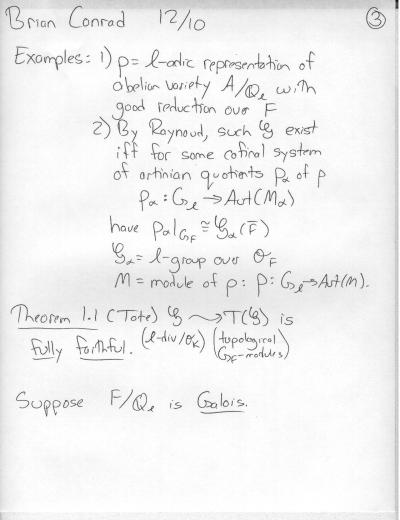 Brian Conrad 12/10 ③
Examples: 1) ρ = l-adic representation of
abelian variety A/Q_l with
good reduction over F
2) By Raynaud, such 𝒢 exist
iff for some cofinal system
of artinian quotients ρ_α of ρ
ρ_α : G_l → Aut(M_α)
have ρ_α|_{G_F} ≅ 𝒢_α(F̄)
𝒢_α = l-group over 𝒪_F
M = module of ρ : ρ : G_l → Aut(M).
Theorem 1.1 (Tate) 𝒢 ⇝ T(𝒢) is
fully faithful. (l-div/𝒪_K) (topological
G_F-modules)
Suppose F/Q_l is Galois.